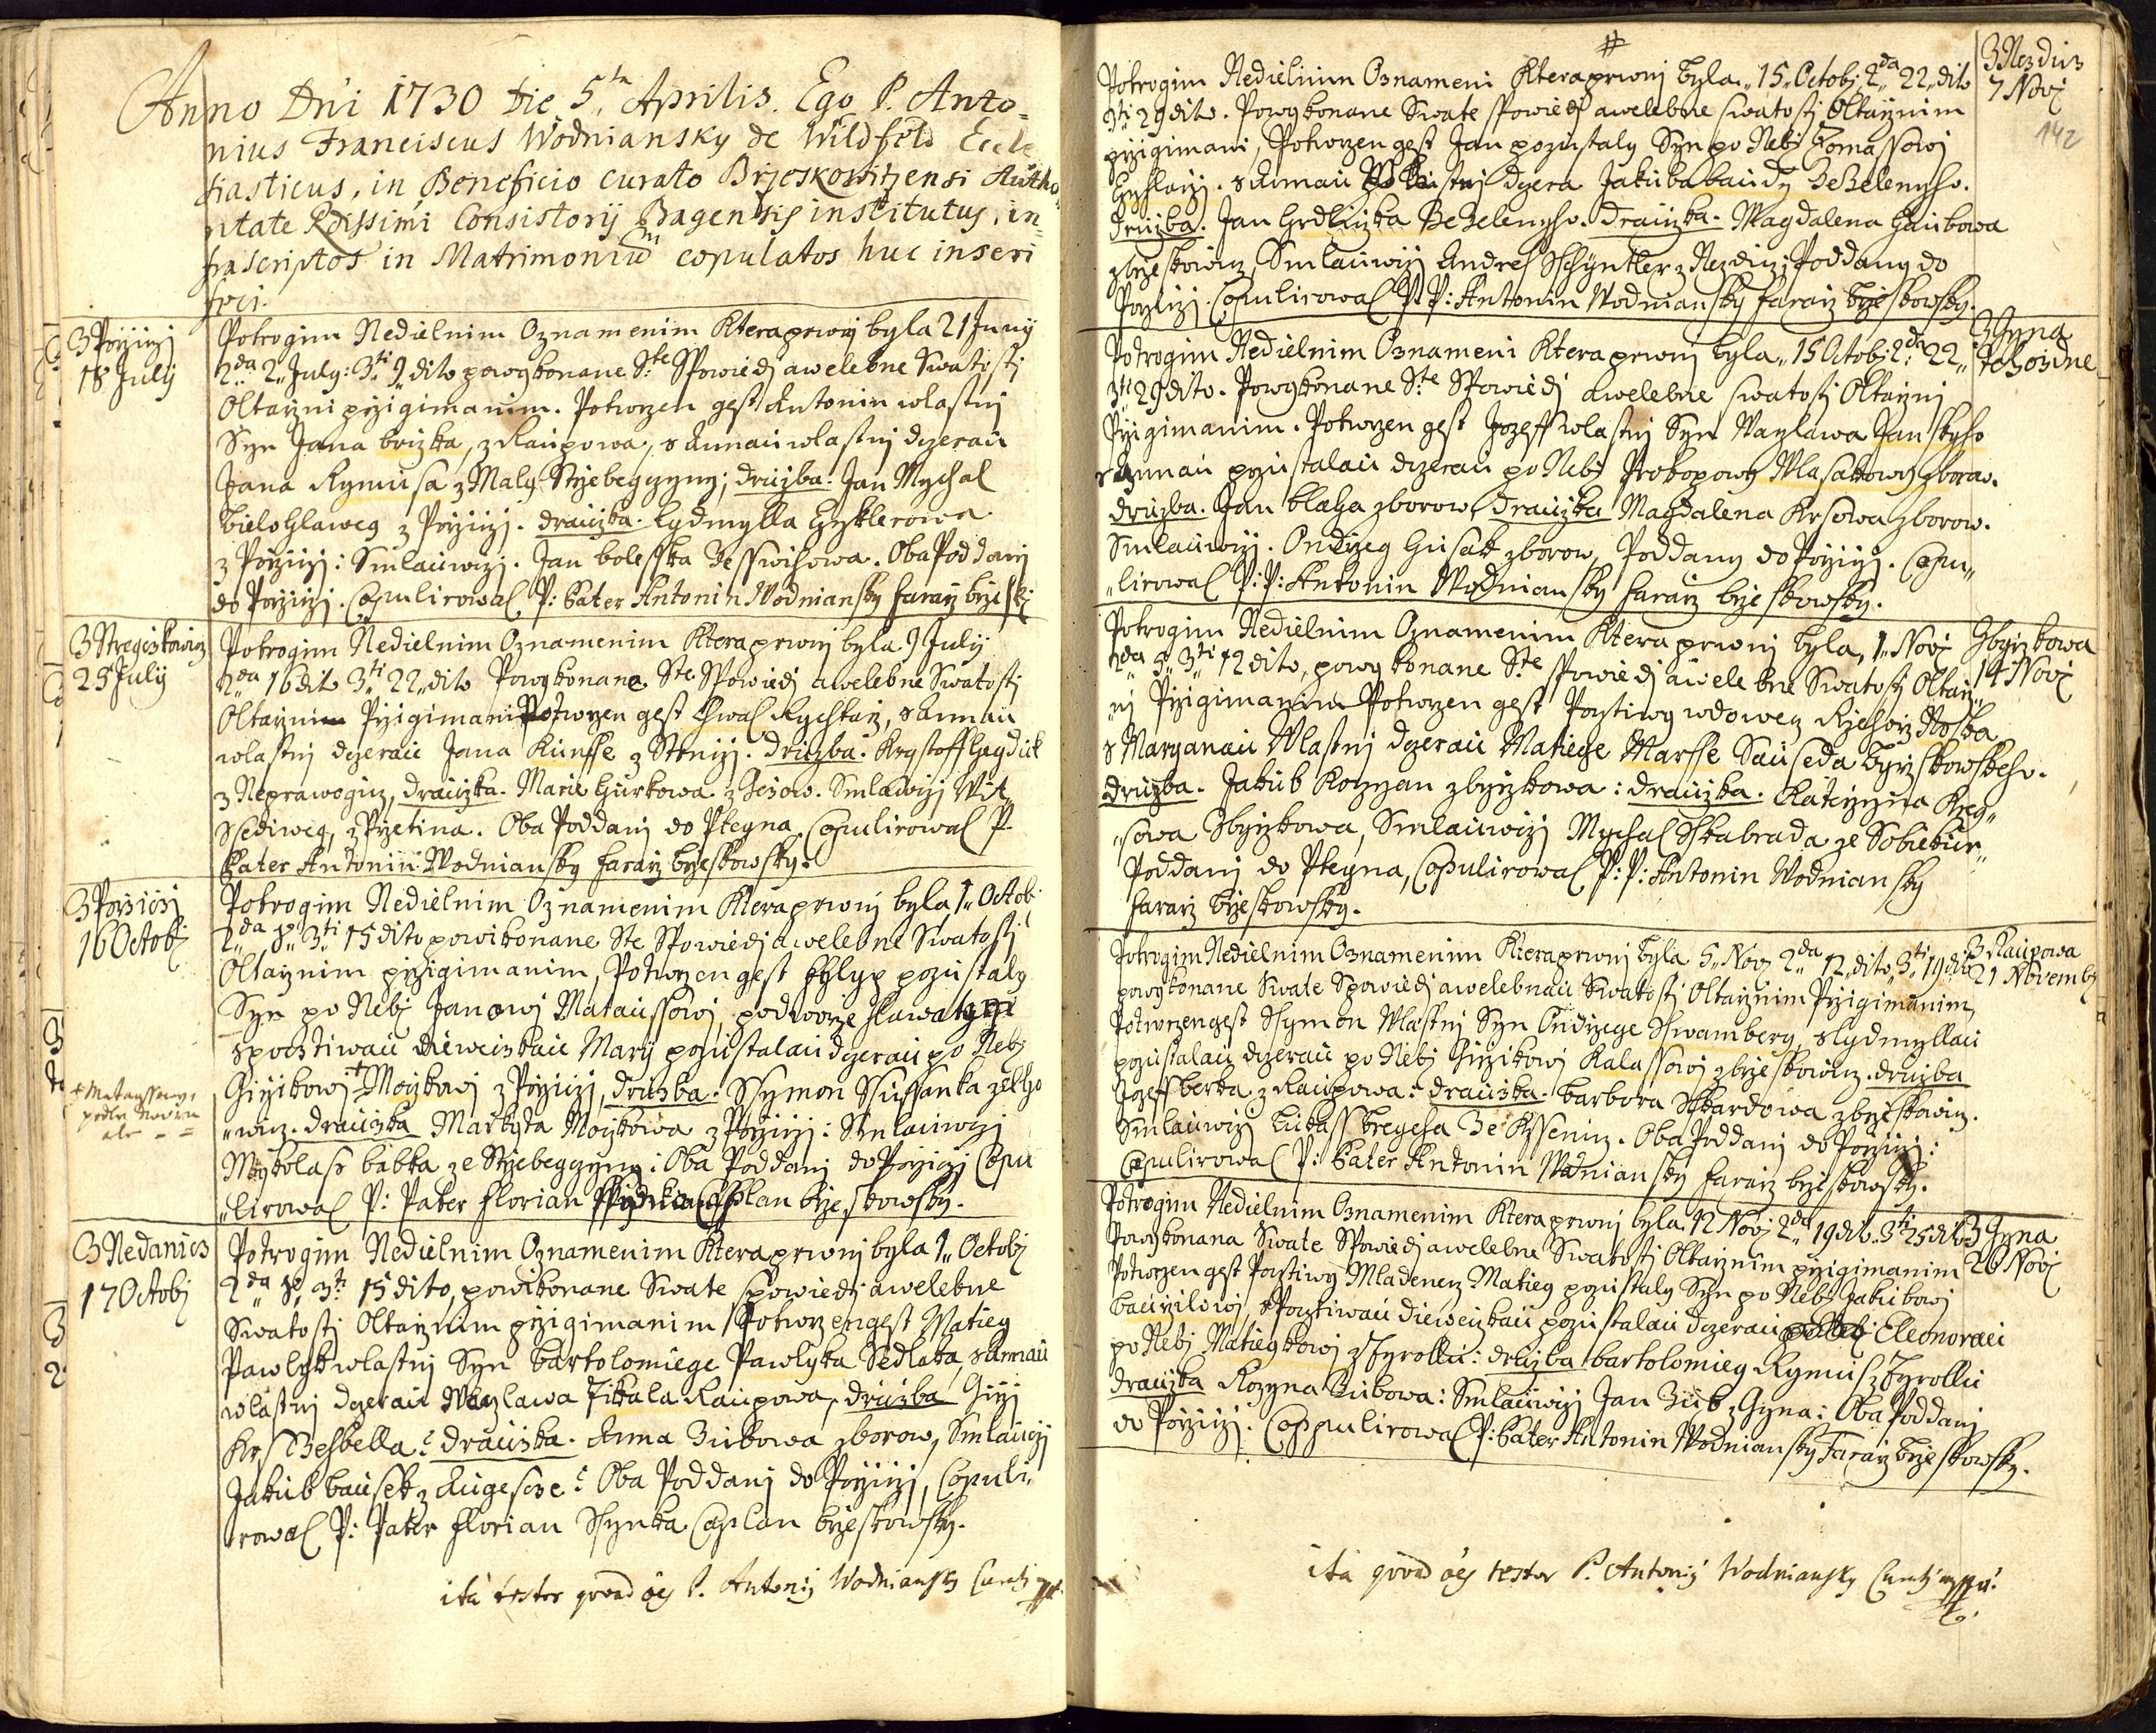 Anno Dni 1730 Die 5ta Aprilis. Ego P. Anto=
nius Franciscus Wodniansky de Wildfeld Eccle
siasticus, in Beneficio curato Brzeskowitzensi Autho
ritate Rdissimi Consistorij Pragensis institutus, in=
frascriptos in Matrimoniu copulatos huc inseri
feci.
3 Przijzj
18 July
Potrogim Nedielnim Oznamenim Ktera prwnj byla 21 Junij
2da 2 July: 3ti 9 dito powykonane Ste Spowiedj awelebne Swatosti
Oltarzni przigimanim. Potwrzen gest Antonin wlastnj
Syn Jana brizka, z Raupowa, s Annau wlastnj dczerau
Jana Rymusa z Maly Strzebeyczyny; družba. Jan Mychal
bielohlaweg z Przizj. draužka. Lydmylla
z Przizj: Smlauwczj. Jan bolesska Ze Sswihowa. Oba Poddanj
do Przizj. Copulirowal P: Pater Antonin Wodniansky faraz brzeskj
3 Stregczkowicz
25 July
Potrogim Nedielnim Oznamenim Ktera prwnj byla 9 July
2da 16 dito 3ti 22 dito Powykonane Ste Spowiedj awelebne Swatosti
Oltarznim Przigimani Potwrzen gest Hwal Rychtarz, s Annau
wlastnj dczerau Jana Kunsse z Stenizj. družba. Krystoff
z Neprawogicz, draužka. Marie Hurkowa z Jezow. Smlauwczj Wit
Ssediweg, z Przetina. Oba Poddanj do Ptegna Copulirowal P.
Pater Antonin Wodniansky faraz brzeskowsky.
3 Porzicij
16 Octobj
Potrogim Nedielnim Oznamenim Ktera prwnj byla 1 Octob
2da 8 3ti 15 dito powikonane Ste Spowiedj awelebne Swatosti
Oltarznim przigimanim, Potwrzen gest Fylyp pozustaly
Syn po Nebj Janowj Mataussowj, podworze
spoctiwau dieweczkau Marij pozustalau dczerau po Nebj
Girzikowj + Moyzkowj z Przizj, družba. Ssymon Ssussanka
wicz. draužka Markyta Moyzkowa z Przizj: Smlauwczj
Mykolass babka ze Strzebeyczyny: Oba Poddanj do Przizj Copu
lirowal P: Pater Florian Caplan brzeskowsky.
+ Mataussowy
3 Nedanicz
17 Octobj
Potrogim Nedielnim Oznamenim Ktera prwnj byla 1 Octobj
2da 8 3ti 15 dito, powikonane Swate spowiedj awelebne
Swatosti Oltarznim przigimanim Potwrzen gest Matieg
Pawlyk wlastnj Syn bartolomiege Pawlyka Sedlaka, s Annau
wlastnj dczerau Waczlawa Fikala Raupowa, družba Girzj
Krs Zesbella: draužka. Anna Zukowa zborow, Smlauwczj
Jakub bausek z Augesoze: Oba Poddanj do Przizj, Copuli
rowal P: Pater Florian Ssynka Caplan brzeskowsky.
ita testor quoad oes P. Antonij Wodniansky Curatj mpp
142
3 Nezdicz
7 Novj
Potrogim Nedielnim Oznameni Ktera prwnj byla 15 Octobj 2da 22 dito
3ti 29 dito. Powykonane Swate spowiedj awelebne swatosti Oltarznim
przigimani, Potwrzen gest Jan pozustaly Syn po Nebj Tomassowj
s Annau wlastnj dczera Jakuba baudy Zezeleneho.
Družba. Jan Hrdliczka Zezeleneho. draužka. Magdalena Haubowa
z brzeskowicz, Smlauwczj Andres Schyntler z Nezdicz; Poddany do
Przizj. Copulirowal P: P: Antonin Wodniansky faraz brzeskowsky.
3 Gyna
Potrogim Nedielnim Oznameni Ktera prwnj byla 15 Octobj 2da 22
3ti 29 dito. Powykonane Ste Spowiedj awelebne swatosti Oltarznj
Przigimanim. Potwrzen gest Jozeff wlastnj Syn Waczlawa Janskyho
s Annau pozustalau dczerau po Nebj Prokopowj Wlasakowj zborow.
družba. Jan blaha zborow, draužka Magdalena Krsowa zborow.
Smlauwczj. Ondrzeg Husak zborow, Poddany do Przizj. Copu
lirowal P: P: Antonin Wodniansky faraz brzeskowsky.
Zbyrzkowa
14 Novj
Potrogim Nedielnim Oznamenim Ktera prwnj byla, 1 Novj
2da 5 3ti 12 dito, powykonane Ste spowiedj awelebne Swatosti Oltarz
nj Przigimanim Potwrzen gest Poctiwy wdowecz Rzehorz Hoska
s Maryanau Wlastnj dczerau Matiege Marsse Sauseda byrzkowskeho.
družba. Jakub Kozyan z byrzkowa: draužka. Katerzyna Kreg
sowa Zbyrzkowa, Smlauwczj Mychal Skabrada ze Sobiekur
Poddanj do Ptegna, Copulirowal P: P: Antonin Wodniansky
faraz brzeskowsky.
3 Raupowa
21 Novembj
Potrogim Nedielnim Oznamenim Ktera prwnj byla 5 Novj 2da 12 dito, 3ti 19 dito
powykonane Swate Spowiedj awelebnau Swatosti Oltarznim Przigimanim,
Potwrzen gest Ssymon Wlastnj Syn Ondrzege Schwamberg, s Lydmyllau
pozustalau dczerau po Nebj Girzikowj Kalassowj z brzeskowicz. družba
Jozeff berka z Raupowa: draužka. barbora Sskardowa z brzeskowicz.
Smlauwczj Lukass bregcha Ze Kssenicz. Oba Poddanj do Przizj:
Copulirowal P: Pater Antonin Wodniansky faraz brzeskowsky.
3 Gyna
26 Novj
Potrogim Nedielnim Oznamenim Ktera prwnj byla 12 Novj 2da 19 dito 3ti 25 dito
Powykonana Swate Spowiedj awelebne Swatosti Oltarznim przigimanim
Potwrzen gest Poctiwy Mladenecz Matieg pozustaly Syn po Nebj Jakubowj
bauzilowj, s Poctiwau dieweczkau pozustalau dczerau Eleonorau
po Nebj Matiegkowj z Tyrollu: družba bartolomieg Rymus z Tyrollu
draužka Rozyna Zukowa: Smlauwczj Jan Zub z Gyna: Oba Poddanj
do Przizj. Coppulirowal P: Pater Antonin Wodniansky Faraz brzeskowsky.
ita quoad oes testor P. Antonij Wodniansky Curatj mpp